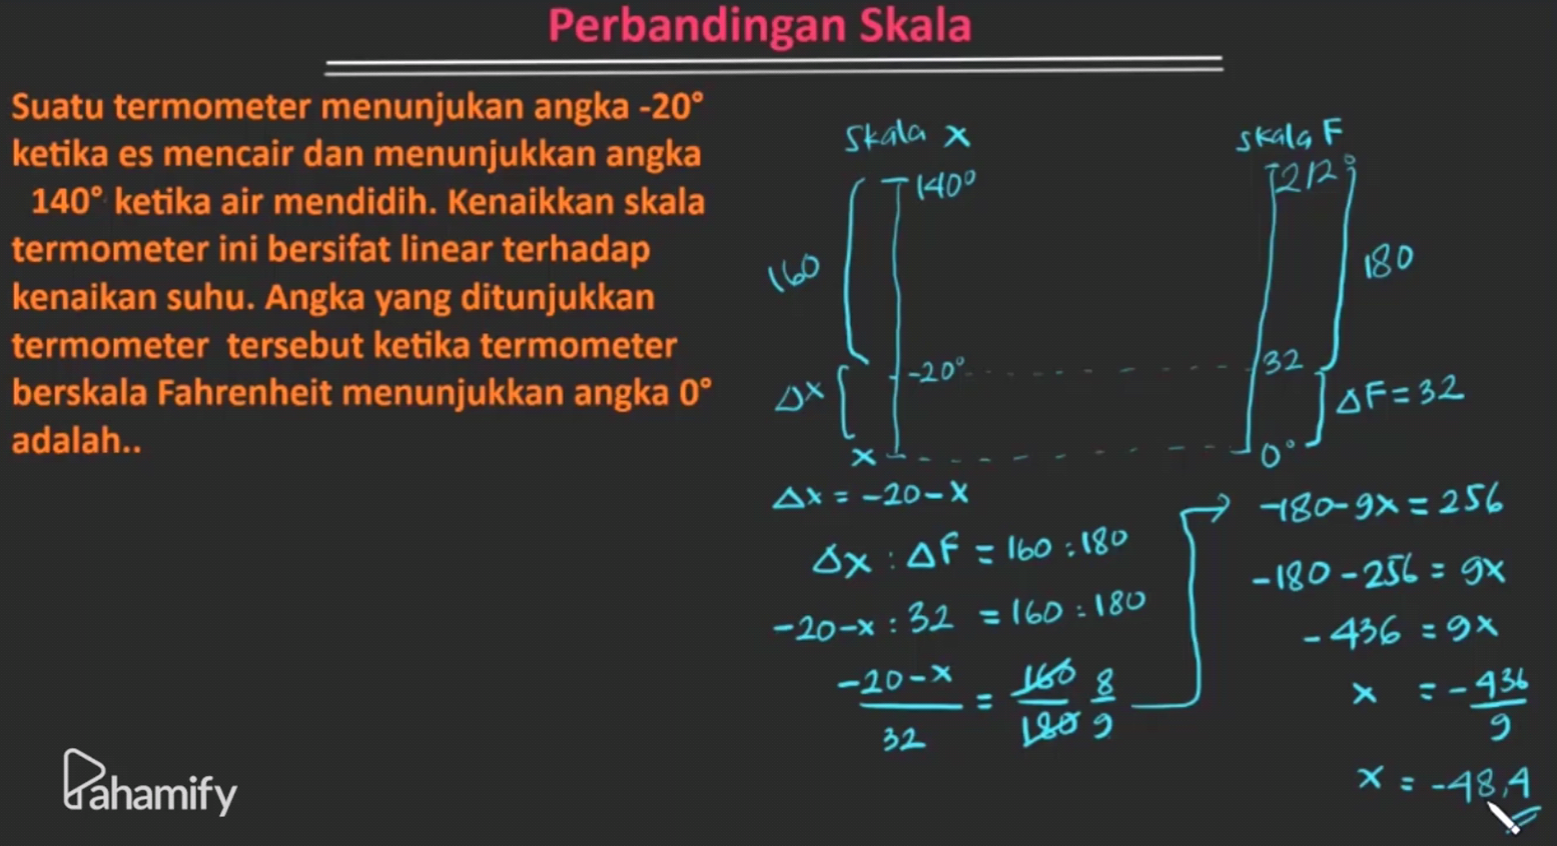 Perbandingan Skala
Suatu termometer menunjukan angka -20°
ketika es mencair dan menunjukkan angka
140° ketika air mendidih. Kenaikkan skala
termometer ini bersifat linear terhadap
kenaikan suhu. Angka yang ditunjukkan
termometer tersebut ketika termometer
berskala Fahrenheit menunjukkan angka 0°
adalah..
Skala x
140°
160
-20°
Δx
x
skala F
212°
180
32
ΔF = 32
0°
Δx = -20-x
Δx : ΔF = 160 : 180
-20-x : 32 = 160 : 180
-20-x / 32 = 160 / 180 8 / 9
-180-9x = 256
-180-256 = 9x
-436 = 9x
x = -436 / 9
x = -48,4
Pahamify